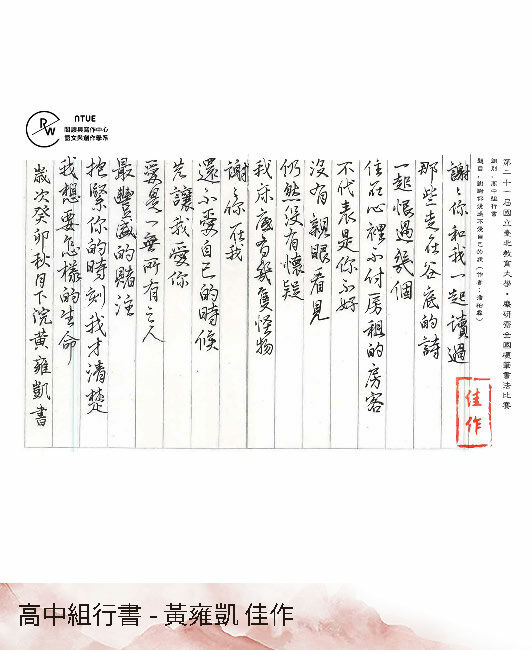 RW
NTUE
閱讀與寫作中心
語文與創作學系
第二十一屆國立臺北教育大學・麋研齋全國硬筆書法比賽
組別：高中組行書
謝謝你和我一起讀過
那些走在谷底的詩
一起恨過幾個
住在心裡不付房租的房客
不代表是你不好
沒有親眼看見
仍然沒有懷疑
我床底有幾隻怪物
謝謝你在我
還不愛自己的時候
先讓我愛你
愛是一無所有之人
最豐盛的賭注
抱緊你的時刻我才清楚
我想要怎樣的生命
歲次癸卯秋月下浣黃雍凱書
佳作
高中組行書 - 黃雍凱 佳作